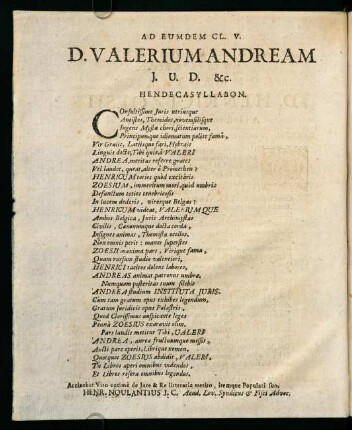 AD EUMDEM CL. V.
D. VALERIUM ANDREAM
J. U. D. &c.
HENDECASYLLABON.
COnsultissime Juris utriusque
Antistes, Themidos,
Ingens Mystæ chori, scientiarum,
Principumque idiomatum polite famâ,
Vir Graiis, Latiisque fari, Hebræis
Linguis docte, Tibi quis â VALERI
ANDREA, meritas referre grates
Vel laudes, queat, alter ô Prometheu?
HENRICUM toties quòd excitâris
ZOESIUM, immeritum mori, quòd umbris
Defunctum toties tenebricosis
In lucem dederis, uterque Belgas?
HENRICUM videat, VALERIUMQUE
Ambos Belgica, Juris Architectas
Civilis, Canonumque docta corda,
Insignes animas, Themistæ ocellos,
Non omnis perit: manes superstes
ZOESII maxima pars, Virique fama,
Quam rursum studio valentiori,
HENRICI tacitos dolens labores,
ANDREAS animat patronus umbræ.
Numquam posteritas suum silebit
ANDREÆ studium INSTITUTA JURIS.
Cum tam gratum opus exhibes legendum,
Gratum juridicis opus Palæstris,
Quod Clarissimus auspicante legeo
Pennâ ZOESIUS exaravit olim.
Pars laudis metitur Tibi, VALERI
ANDREA, aurea fructuumque messis,
Aucti pare operis, Librique nomen.
Quæque ZOESIUS abdidit, VALERI,
Tu Libros aperi omnibus videndos,
Et Libros resera omnibus legendos.
Accinebat Viro optimè de Jure & Re litteraria merito, itemque Populari suo,
HENR. NOULANTIUS J. C. Acad. Lov. Syndicus & Fisci Advoc.